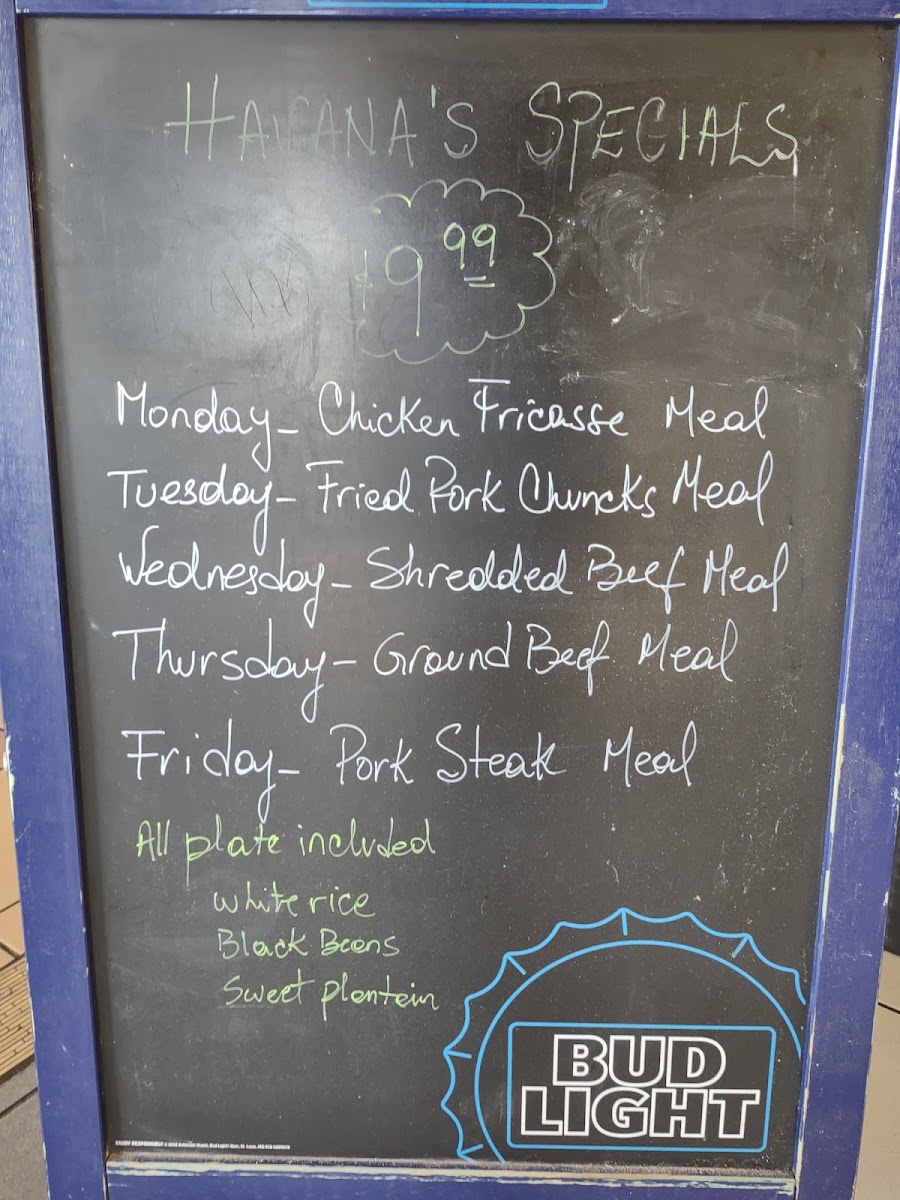 HAVANA'S SPECIALS
$9.99
Monday- Chicken Fricasse Meal
Tuesday- Fried Pork Chuncks Meal
Wednesday- Shredded Beef Meal
Thursday- Ground Beef Meal
Friday- Pork Steak Meal
All plate included
white rice
Black Beans
Sweet plantain
BUD
LIGHT
ENJOY RESPONSIBLY